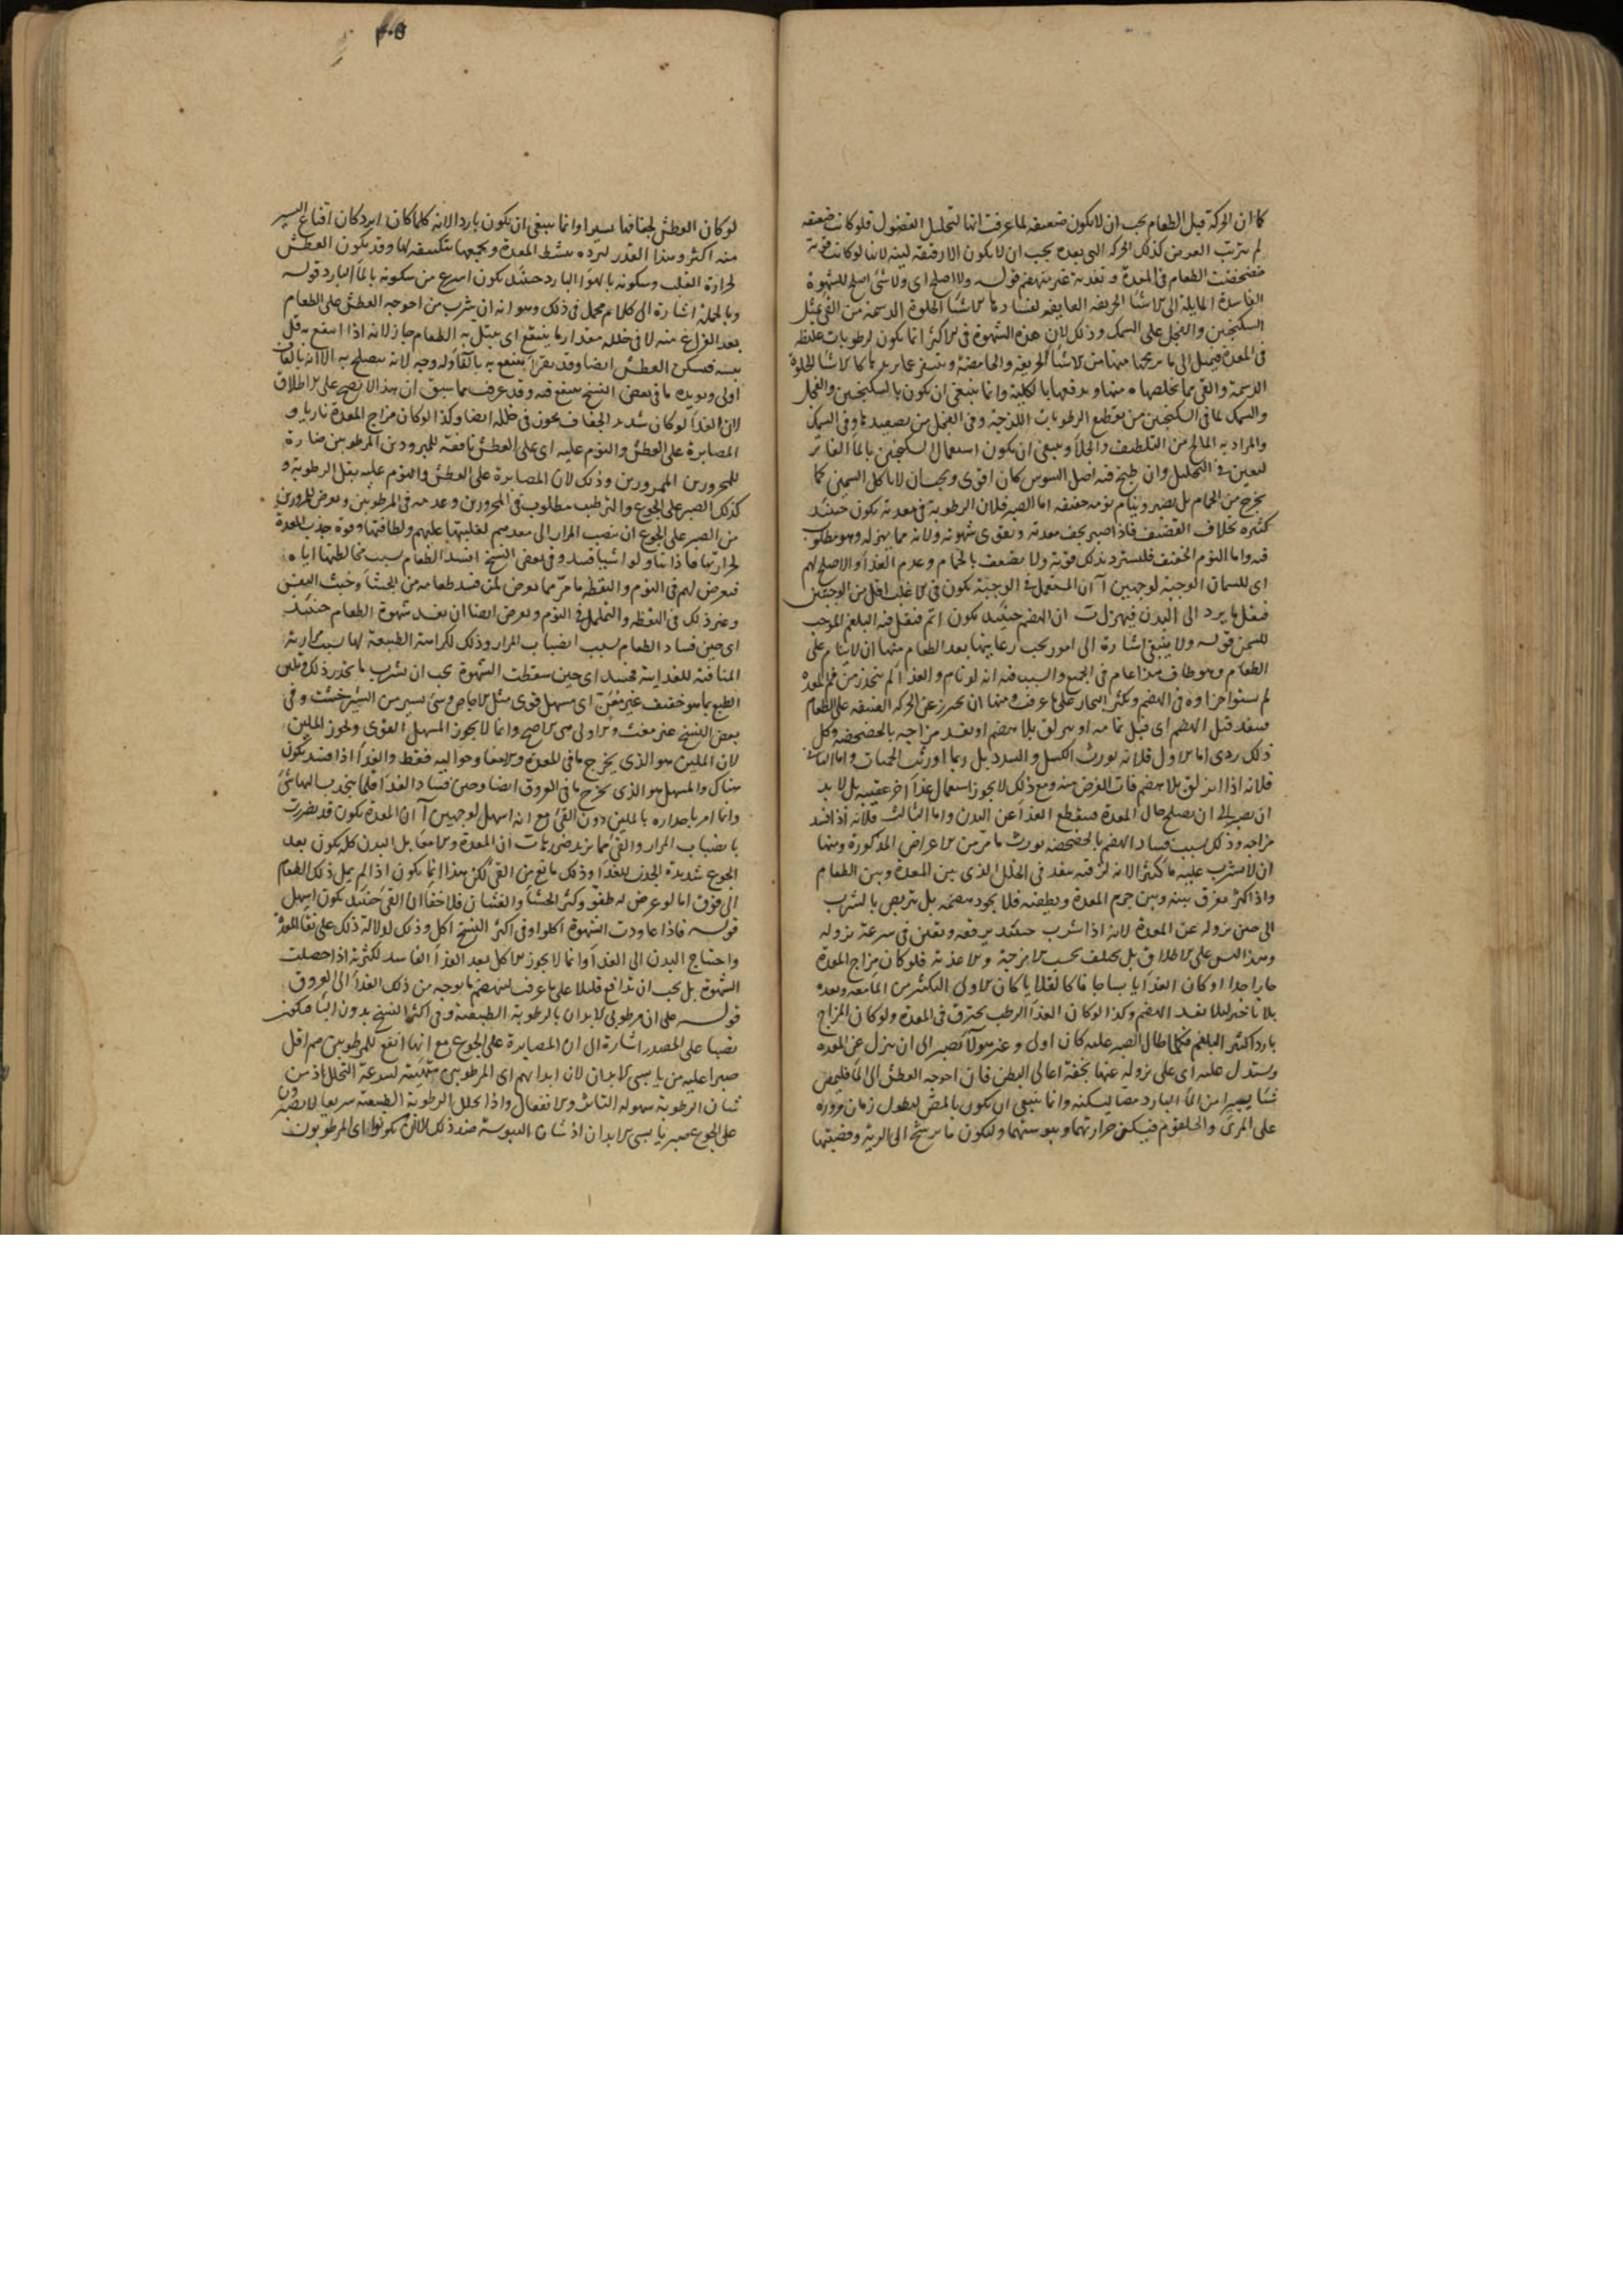 كما ان الحركة قبل الطعام يجب ان لا يكون ضعيفه لما عرفت انها لتحليل الفضول فلو كانت ضعيفه
لم يترتب الغرض كذلك الحركه التى بعده يجب ان لا يكون الا رقيقة لينه لانها لو كانت قوية
خضخضت الطعام فى المعدة و تغذيه غير منهضم قوله ولا اصلح اى ولا شئ اصلح للشهوة
الفاسدة المايلة الى الاشيا الحريفه العايفه لفسادها الاشيا الحلوة الدسمة من القى بمثل
السكنجبين والفجل على السمك وذلك لان هذه الشهوة فى الاكثر انما يكون لرطوبات غليظه
فى المعدة فيميل الى ما يريحها منها من الاشيا الحريفه والحامضة و يتنفر عما يزيدها كالاشيا الحلوة
الدسمة والقى مما يخلصها منها و يدفعها بالكلية وانما ينبغى ان يكون بالسكنجبين والفجل
والسمك لما فى السكنجبين من تقطيع الرطوبات اللزجة وفى الفجل من تصعيدها وفى السمك
والمراد به المالح من التلطيف والجلا وينبغى ان يكون استعمال السكنجبين بالما الفاتر
ليعين فى التحليل وان طبخ فيه اصل السوس كان اقوى ويجب ان لا ياكل السمين كما
يخرج من الحمام بل يصبر وينام نومه خفيفه اما الصبر فلان الرطوبة فى معدته يكون حينئد
كثيره بخلاف القضيف فاذا صبر يجف معدته و يقوى شهوته ولانه مما يهزله وهو مطلوب
فيه واما النوم الخفيف فليسترد بذلك قوته ولا يضعف بالحمام وعدم الغذا والاصلح لهم
اى للسمان الوجبة لوجهين آ ان المستعمل فى الوجبة يكون فى الاغلب اقل من الوجبتين
فيقل ما يرد الى البدن فيهزل ب ان الهضم حينئد يكون اتم فيقل فيه البلغم الموجب
للسمن قوله ولا ينبغى اشارة الى امور يجب رعايتها بعد الطعام منها ان لا ينام على
الطعام وهو طاف هذا عام فى الجميع والسبب فيه انه لو نام والغذا لم ينحدر من فم المعدة
لم يستو اجزاوه فى الهضم ويكثر البخار على ما عرفت ومنها ان يحترز عن الحركه العنيفه على الطعام
فينفذ قبل الهضم اى قبل تمامه او ينزلق بلا هضم او يفسد مزاجه بالخضخضه وكل
ذلك ردى اما الاول فلانه يورث الكسل والسدد بل ربما اورث الحميات واما الثانى
فلانه اذا انزلق بلا هضم فات الغرض منه ومع ذلك لا يجوز استعمال غذا آخر عقيبه بل لا بد
ان يصبر الى ان يصلح حال المعدة فينقطع الغذا عن البدن واما الثالث فلانه اذا فسد
مزاجه وذلك بسبب فساد الهضم بالخضخضه يورث ما مر من الاعراض المذكورة ومنها
ان لا يشرب عليه ما كثيرا لانه لرقته ينفذ فى الخلل الذى بين المعدة وبين الطعام
واذا كثر يفرق بينه وبين جرم المعدة ويطفيه فلا يجود هضمه بل يتربص بالشراب
الى حين نزوله عن المعدة لانه اذا شرب حينئد يرققه ويعين فى سرعة نزوله
وهذا ليس على الاطلاق بل يختلف بحسب الامزجة والاغذية فلو كان مزاج المعدة
حارا جدا او كان الغذا يابسا جافا كالقلايا كان الاولى التكثير من الما معه وبعده
بلا تاخير ليلا يفسد الهضم وكذا لو كان الغذا الرطب يحترق فى المعدة ولو كان المزاج
باردا كثير البلغم فكلما طال الصبر عليه كان اولى وغير هولآ يصبر الى ان ينزل عن المعده
ويستدل عليه اى على نزوله عنها بخفة اعالى البطن فان احوجه العطش الى الما فليمص
شيا يسيرا من الما البارد مصا ليسكنه وانما ينبغى ان يكون بالمص ليطول زمان مروره
على المرئ والحلقوم فيسكن حرارتهما ويبوستهما وليكون ما يرشح الى الرية وقصبتها
۴۰۵
لو كان العطش لجفافها يسيرا وانما ينبغى ان يكون باردا لانه كلما كان ابرد كان اقناع اليسير
منه اكثر وهذا القدر لبرده ينشط المعدة ويجمعها بتكثيفه لها وقد يكون العطش
لحرارة القلب وسكونه بالهوا البارد حينئد يكون اسرع من سكونه بالما البارد قوله
وبالجملة اشارة الى كلام مجمل فى ذلك وهو انه ان شرب من احوجه العطش على الطعام
بعد الفراغ منه لا فى خلله مقدار ما ينتقع اى يبتل به الطعام جاز لانه اذا انتفع به قل
يبسه فسكن العطش ايضا وقد يقرا ينتفع به بالفا وله وجه لانه يصلح به الا انه بالقاف
اولى ويؤيده ما فى بعض النسخ ينتقع فيه وقد عرف مما سبق ان هذا لا يصح على الاطلاق
لان الغذا لو كان شديد الجفاف يجوز فى خلله ايضا وكذا لو كان مزاج المعدة ناريا و
المصابرة على العطش والنوم عليه اى على العطش نافعة للمبرودين المرطوبين ضارة
للمحرورين الممرورين وذلك لان المصابرة على العطش والنوم عليه يقل الرطوبة و
كذلك الصبر على الجوع والترطيب مطلوب فى المحرورين وعدمه فى المرطوبين ويعرض للمرورين
من الصبر على الجوع ان ينصب المرار الى معدهم لغلبتها عليهم ولطافتها وقوة جذب المعدة
لحرارتها فاذا تناولوا شيا فسد وفى بعض النسخ افسد الطعام بسبب مخالطتها اياه
فيعرض لهم فى النوم واليقظه ما مر مما يعرض لمن فسد طعامه من الجشا وخبث النفس
وغير ذلك فى اليقظه والتململ فى النوم ويعرض ايضا ان يفسد شهوة الطعام حينئد
اى حين فساد الطعام بسبب انصباب المرار وذلك لكراهة الطبيعة لها بسبب مرارته
المنافية للغدايية فحينئد اى حين سقطت الشهوة يجب ان يشرب ما يحدر ذلك ويلين
الطبع بما هو خفيف غير معن اى مسهل قوى مثل الاجاص وشئ يسير من الشيرخشت وفى
بعض النسخ غير مغث والاولى هى الاصح وانما لا يجوز المسهل القوى ويجوز الملين
لان الملين هو الذى يخرج ما فى المعدة والامعا وحواليه فقط والغذا اذا فسد يكون
هناك والمسهل هو الذى يخرج ما فى العروق ايضا وحين فساد الغذا قلما ينجذب اليها شئ
وانما امر باحداره بالملين دون القئ مع انه اسهل لوجهين آ ان المعدة يكون قد تضررت
بانصباب المرار والقئ مما يزيد ضررها ب ان المعدة والامعا بل البدن كله يكون بعد
الجوع شديدة الجذب للغذا وذلك مانع من القئ لكن هذا انما يكون اذا لم يمل ذلك الطعام
الى فوق اما لو عرض له طفو وكثر الجشا والغثيان فلا خفا ان القئ حينئد يكون اسهل
قوله فاذا عاودت الشهوة اكلوا وفى اكثر النسخ اكل وذلك لدلالة ذلك على نقا المعدة
واحتياج البدن الى الغذا وانما لا يجوز الاكل بعد الغذا الفاسد لكثرته اذا حصلت
الشهوة بل يجب ان يدافع قليلا على ما عرفت لينهضم ما يوجه من ذلك الغذا الى العروق
قوله على ان مرطوبى الابدان بالرطوبة الطبيعية وفى اكثر النسخ بدون البا فيكون
نصبا على المصدر اشارة الى ان المصابرة على الجوع مع انها انفع للمرطوبين هم اقل
صبرا عليه من يابسى الابدان لان ابدانهم اى المرطوبين متهيئة لسرعة التحلل اذ من
شان الرطوبة سهولة التاثر والانفعال واذا تحلل الرطوبة الطبيعية سريعا لا يصبرون
على الجوع صبر يابسى الابدان اذ شان اليبوسة ضد ذلك الا ان يكونوا اى المرطوبون